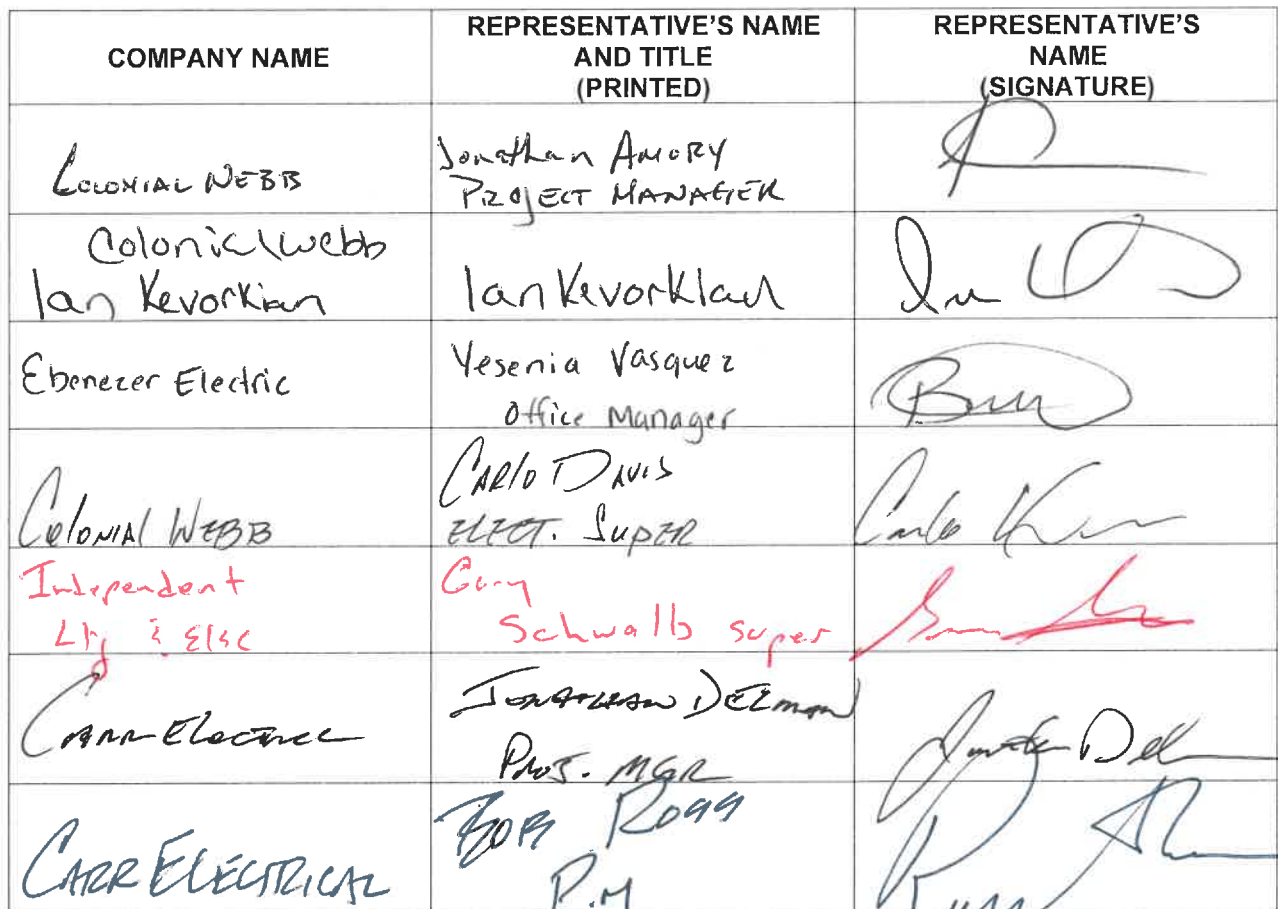 COMPANY NAME
REPRESENTATIVE'S NAME
AND TITLE
(PRINTED)
REPRESENTATIVE'S
NAME
(SIGNATURE)
COLONIAL WEBB
Jonathan AMORY
PROJECT MANAGER
Colonial webb
Ian Kevorkian
Ian Kevorkian
Ebenezer Electric
Yesenia Vasquez
Office Manager
Colonial WEBB
CARlo DAVIS
ELECT. SUPER
Carlo
Independent
Ltg & Elec
Gary
Schwalb super
CARR Electrical
JONATHAN DELMAN
PROJ. MGR
Jonathan Del
CARR ELECTRICAL
BOB ROSS
P.M